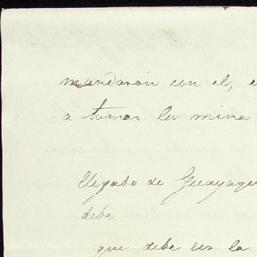 mandaron con el, e
a tomar la mina
Llegado de Guayaqu
debe
que debe ser la